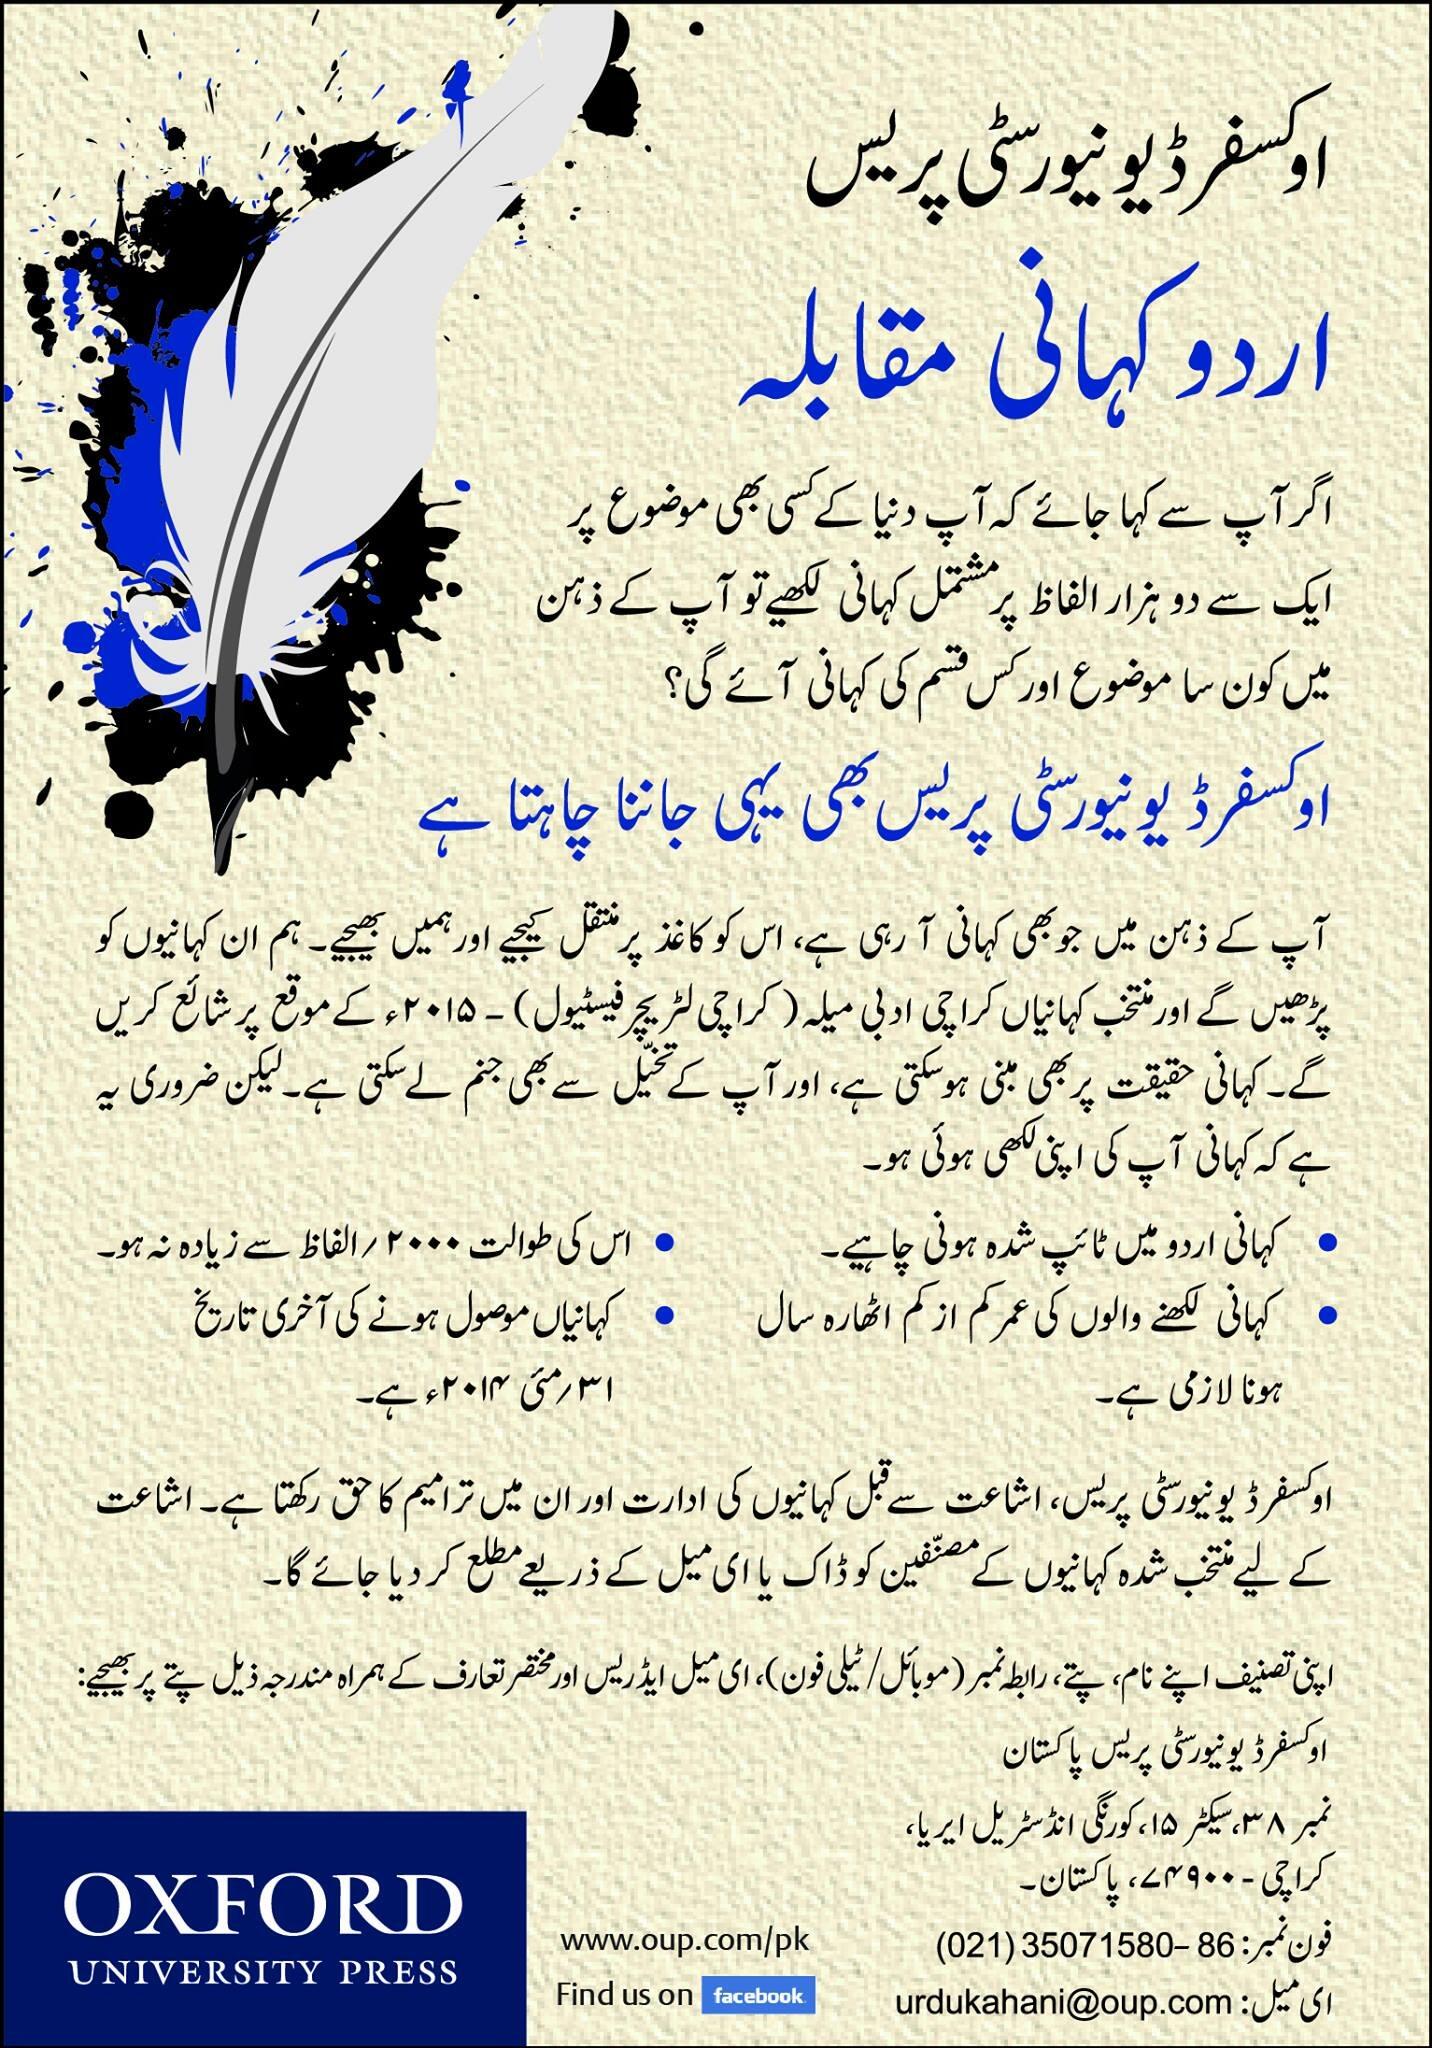 اوکسفرڈ یونیورسٹی پریس
اردو کہانی مقابلہ
اگر آپ سے کہا جائے کہ آپ دنیا کے کسی بھی موضوع پر
ایک سے دو ہزار الفاظ پر مشتمل کہانی لکھیے تو آپ کے ذہن
میں کون سا موضوع اور کس قسم کی کہانی آئے گی؟
اوکسفرڈ یونیورسٹی پریس بھی یہی جاننا چاہتا ہے
آپ کے ذہن میں جو بھی کہانی آ رہی ہے، اس کو کاغذ پر منتقل کیجیے اور ہمیں بھیجیے۔ ہم ان کہانیوں کو
پڑھیں گے اور منتخب کہانیاں کراچی ادبی میلہ (کراچی لٹریچر فیسٹیول) - ۲۰۱۵ء کے موقع پر شائع کریں
گے۔ کہانی حقیقت پر بھی مبنی ہو سکتی ہے، اور آپ کے تخیّل سے بھی جنم لے سکتی ہے۔ لیکن ضروری یہ
ہے کہ کہانی آپ کی اپنی لکھی ہوئی ہو۔
• کہانی اردو میں ٹائپ شدہ ہونی چاہیے۔
• کہانی لکھنے والوں کی عمر کم از کم اٹھارہ سال
ہونا لازمی ہے۔
• اس کی طوالت ۲۰۰۰ / الفاظ سے زیادہ نہ ہو۔
• کہانیاں موصول ہونے کی آخری تاریخ
۳۱/مئی ۲۰۱۴ء ہے۔
اوکسفرڈ یونیورسٹی پریس، اشاعت سے قبل کہانیوں کی ادارت اور ان میں ترامیم کا حق رکھتا ہے۔ اشاعت
کے لیے منتخب شدہ کہانیوں کے مصنّفین کو ڈاک یا ای میل کے ذریعے مطلع کر دیا جائے گا۔
اپنی تصنیف اپنے نام، پتے، رابطہ نمبر (موبائل/ٹیلی فون)، ای میل ایڈریس اور مختصر تعارف کے ہمراہ مندرجہ ذیل پتے پر بھیجیے:
اوکسفرڈ یونیورسٹی پریس پاکستان
نمبر ۳۸، سیکٹر ۱۵، کورنگی انڈسٹریل ایریا،
کراچی - ۷۴۹۰۰، پاکستان۔
فون نمبر: (021) 35071580–86
ای میل: urdukahani@oup.com
www.oup.com/pk
Find us on facebook
OXFORD
UNIVERSITY PRESS